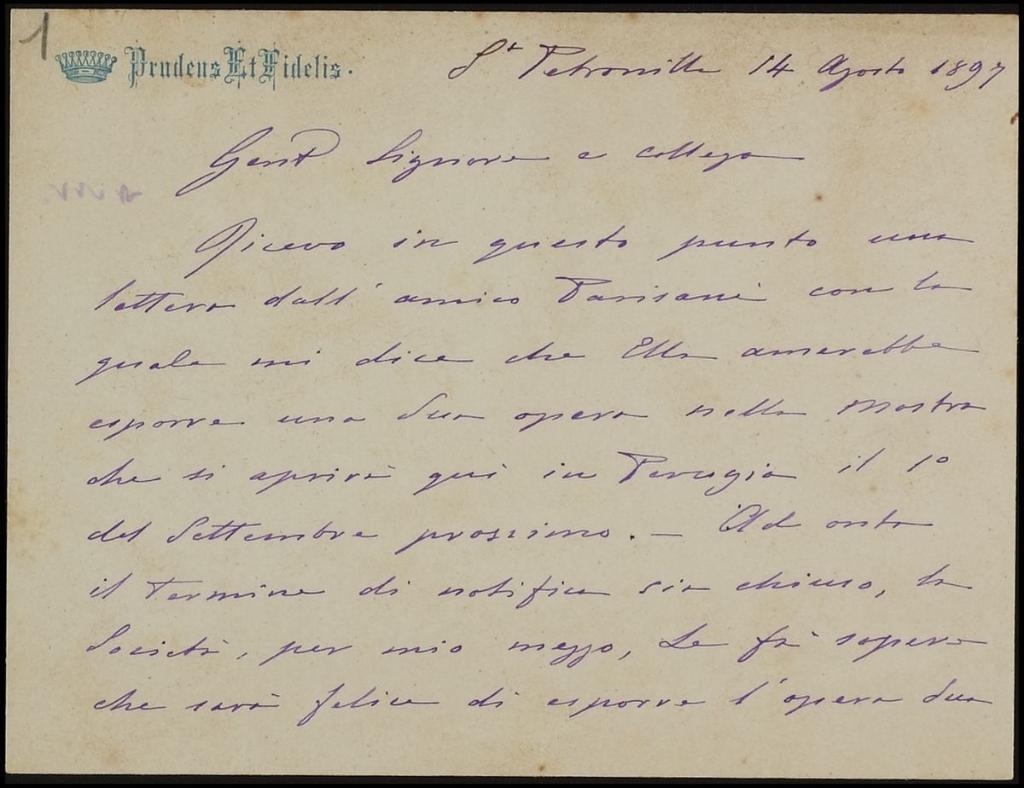 1
Prudens Et Fidelis.
Sᵗ Petronilla 14 Agosto 1897
Gent. Signore e collega
Ricevo in questo punto una
lettera dall' amico Parisani con la
quale mi dice che Ella amerebbe
esporre una Sua opera nella mostra
che si aprirà quì in Perugia il 1º
del Settembre prossimo. — Ad onta
il termine di notifica sia chiuso, la
Società, per mio mezzo, Le fà sapere
che sarà felice di esporre l'opera Sua